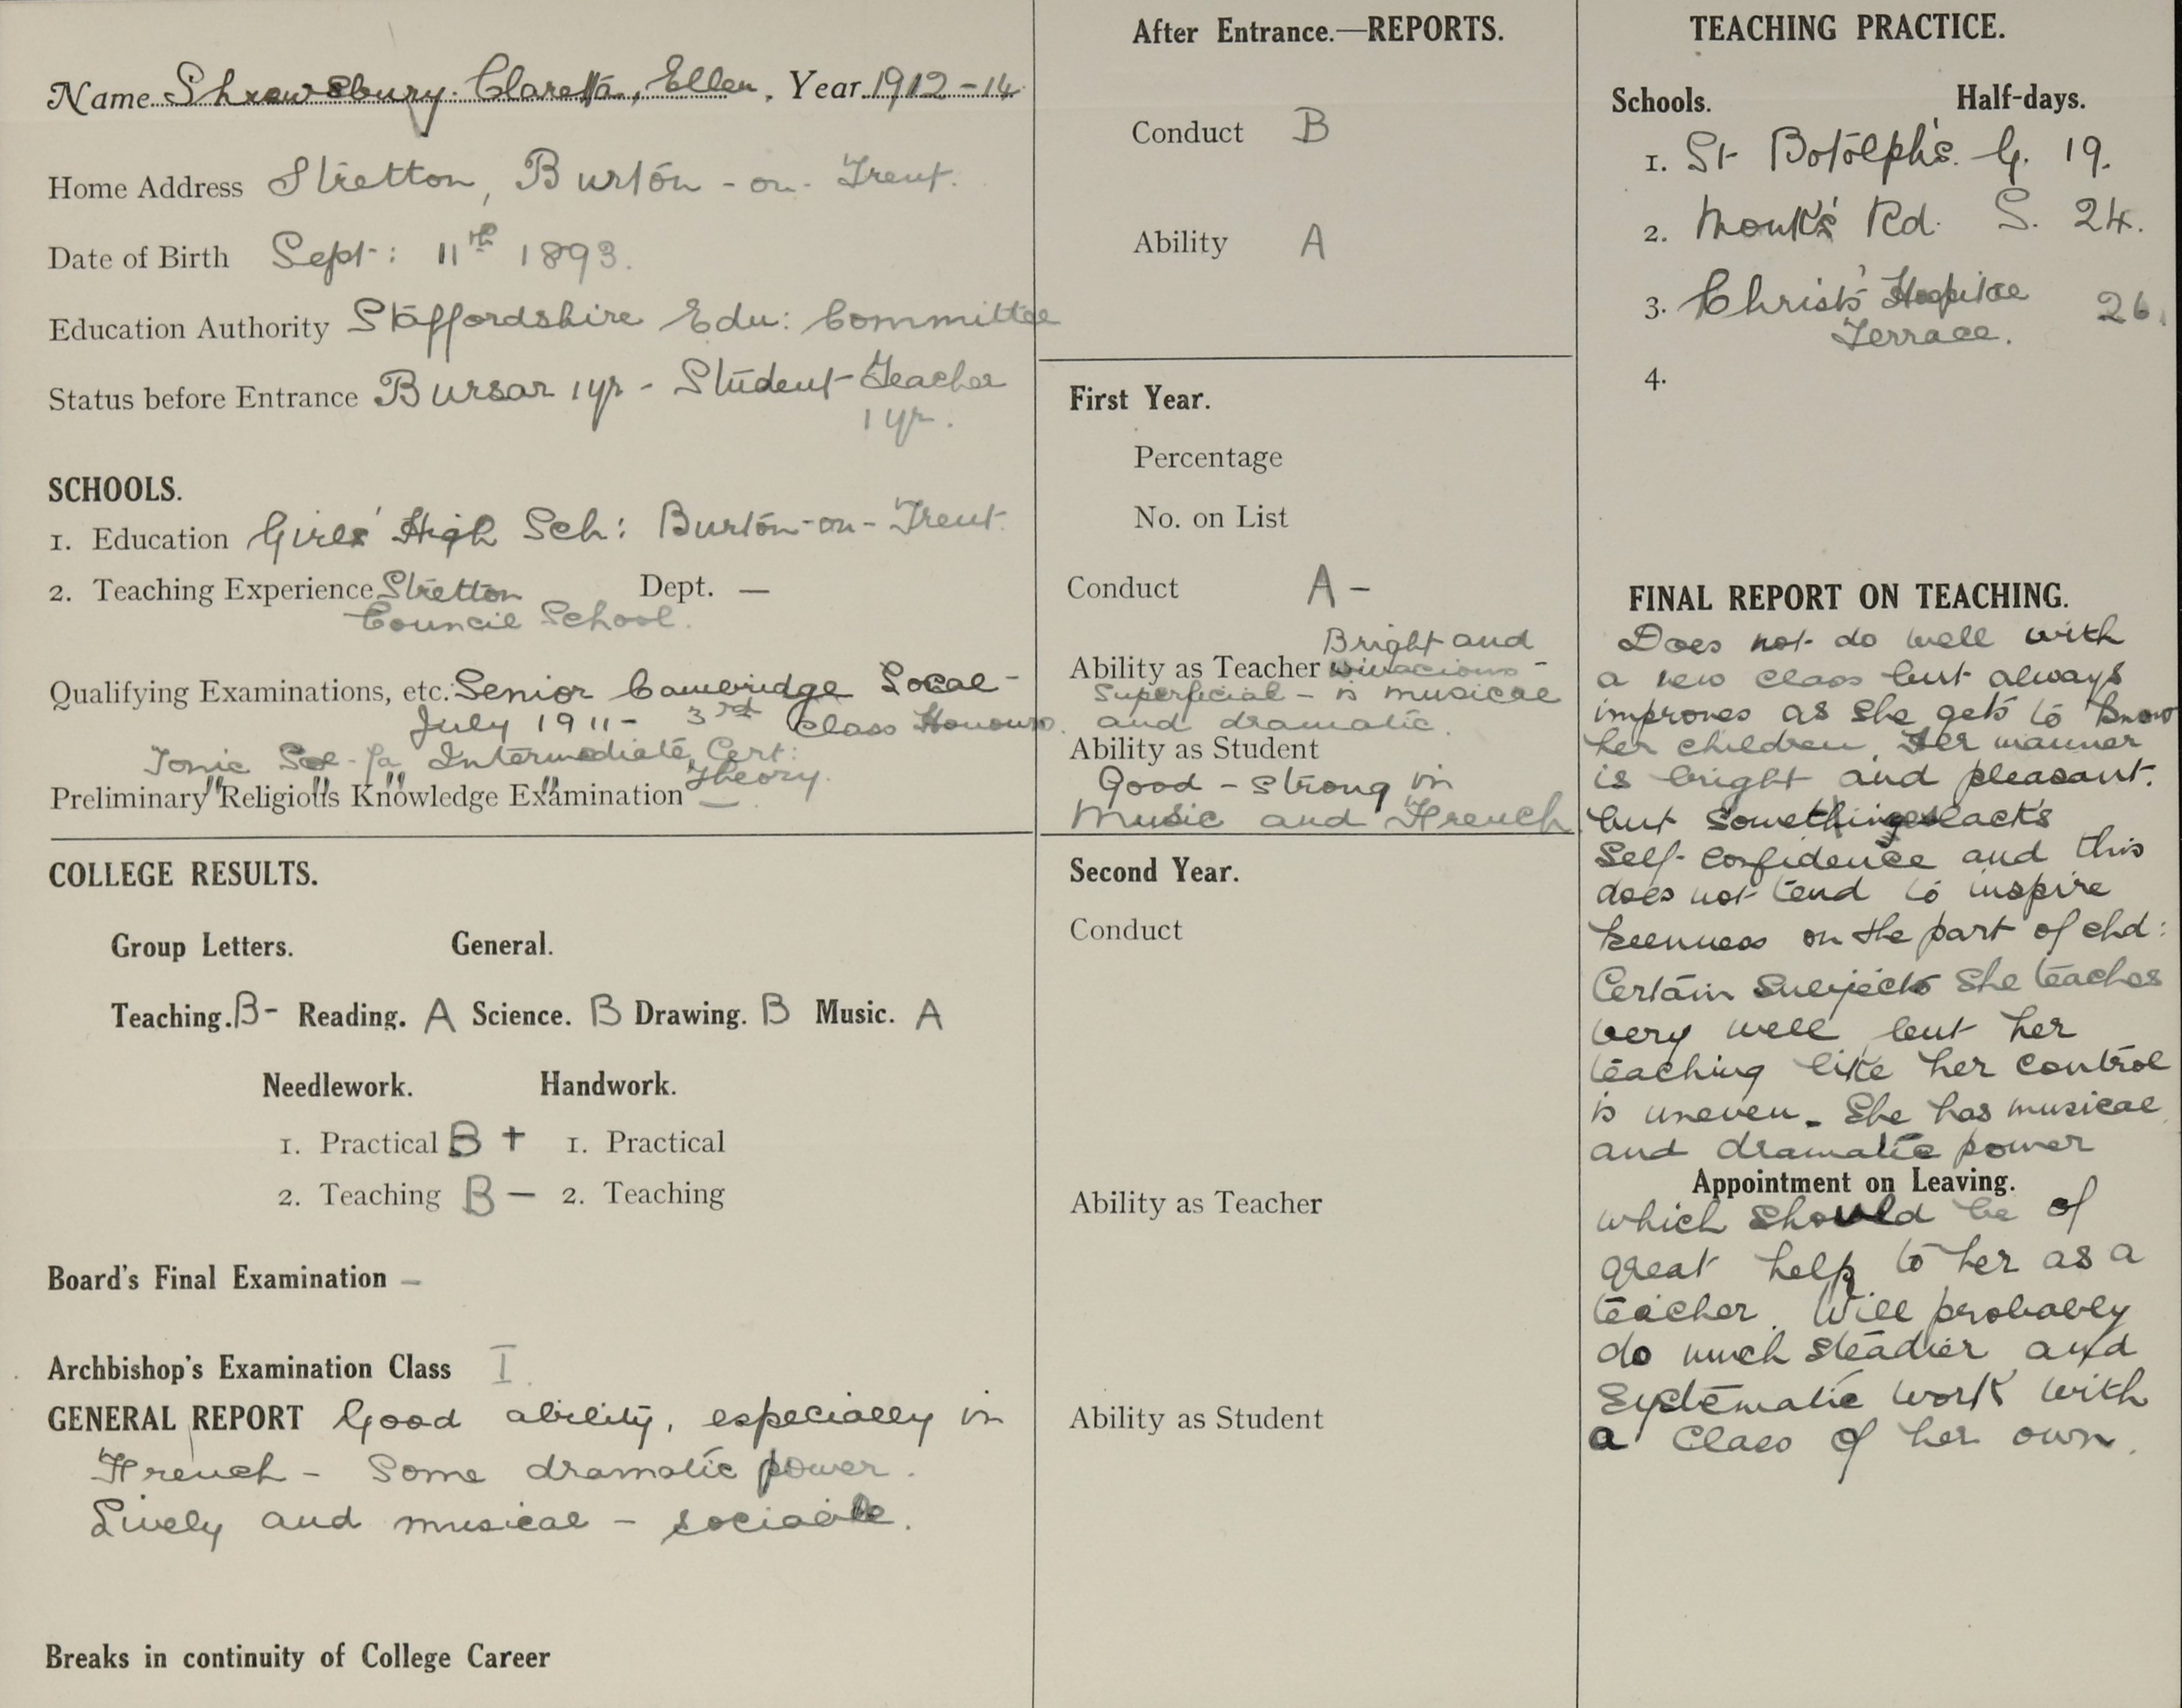 Name Shrewsbury. Claretta, Ellen. Year 1912-14
Home Address Stretton, Burton-on-Trent.
Date of Birth Sept: 11th 1893.
Education Authority Staffordshire Edu: Committee
Status before Entrance Bursar 1 yr - Student-Teacher
1 yr.
SCHOOLS.
1. Education Girls' High Sch: Burton-on-Trent.
2. Teaching Experience Stretton Dept. —
Council School.
Qualifying Examinations, etc. Senior Cambridge Local -
July 1911 - 3rd Class Honours.
Tonic Sol-fa Intermediate Cert:
" " " " Theory.
Preliminary Religious Knowledge Examination —
COLLEGE RESULTS.
Group Letters. General.
Teaching. B- Reading. A Science. B Drawing. B Music. A
Needlework. Handwork.
1. Practical B + 1. Practical
2. Teaching B - 2. Teaching
Board's Final Examination -
Archbishop's Examination Class I.
GENERAL REPORT Good ability, especially in
French - Some dramatic power.
Lively and musical - sociable.
Breaks in continuity of College Career
After Entrance.—REPORTS.
Conduct B
Ability A
First Year.
Percentage
No. on List
Conduct A -
Bright and
Ability as Teacher vivacious -
Superficial - is musical
and dramatic.
Ability as Student
Good - strong in
Music and French
Second Year.
Conduct
Ability as Teacher
Ability as Student
TEACHING PRACTICE.
Schools. Half-days.
1. St Botolph's. G. 19.
2. Monk's Rd. S. 24.
3. Christ's Hospital 26.
Terrace.
4.
FINAL REPORT ON TEACHING.
Does not do well with
a new class but always
improves as she gets to know
her children. Her manner
is bright and pleasant.
but something lacks
self-confidence and this
does not tend to inspire
keenness on the part of chd:
Certain subjects she teaches
very well but her
teaching like her control
is uneven. She has musical
and dramatic power
Appointment on Leaving.
which should be of
great help to her as a
teacher. Will probably
do much steadier and
systematic work with
a class of her own.